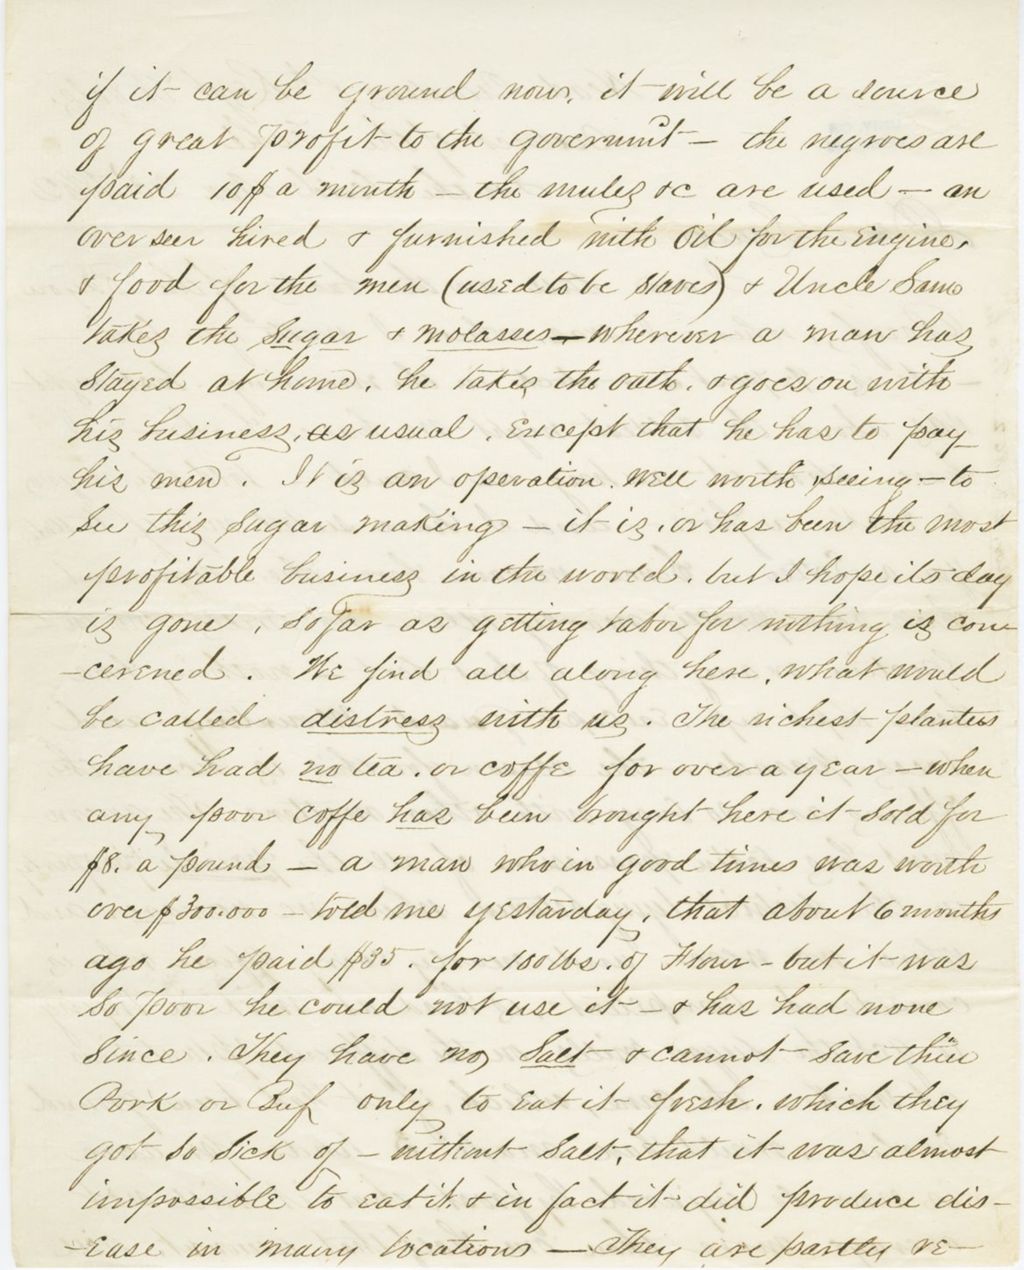 if it can be ground now, it will be a source
of great profit to the governmt — the negroes are
paid 10$ a month — the mules &c are used — an
overseer hired & furnished with Oil for the Engine,
& food for the men (used to be slaves) & Uncle Sam
takes the Sugar & molasses — wherever a man has
Stayed at home, he takes the oath, & goes on with
his business, as usual, Except that he has to pay
his men. It is an operation well worth seeing — to
See this Sugar making — it is, or has been the most
profitable business in the world, but I hope its day
is gone, so far as getting labor for nothing is con
-cerened. We find all along here, what would
be called distress with us. The richest planters
have had no tea, or coffe for over a year — when
any poor coffe has been brought here it Sold for
$8. a pound — a man who in good times was worth
over $300.000 — told me yestarday, that about 6 months
ago he paid $35. for 100 lbs. of Flour - but it was
So poor he could not use it — & has had none
Since. They have no Salt & cannot Save their
Pork or Beef only to Eat it fresh, which they
got So Sick of — without Salt, that it was almost
impossible to Eat it, & in fact it did produce dis-
-Ease in many locations — They are partly re-